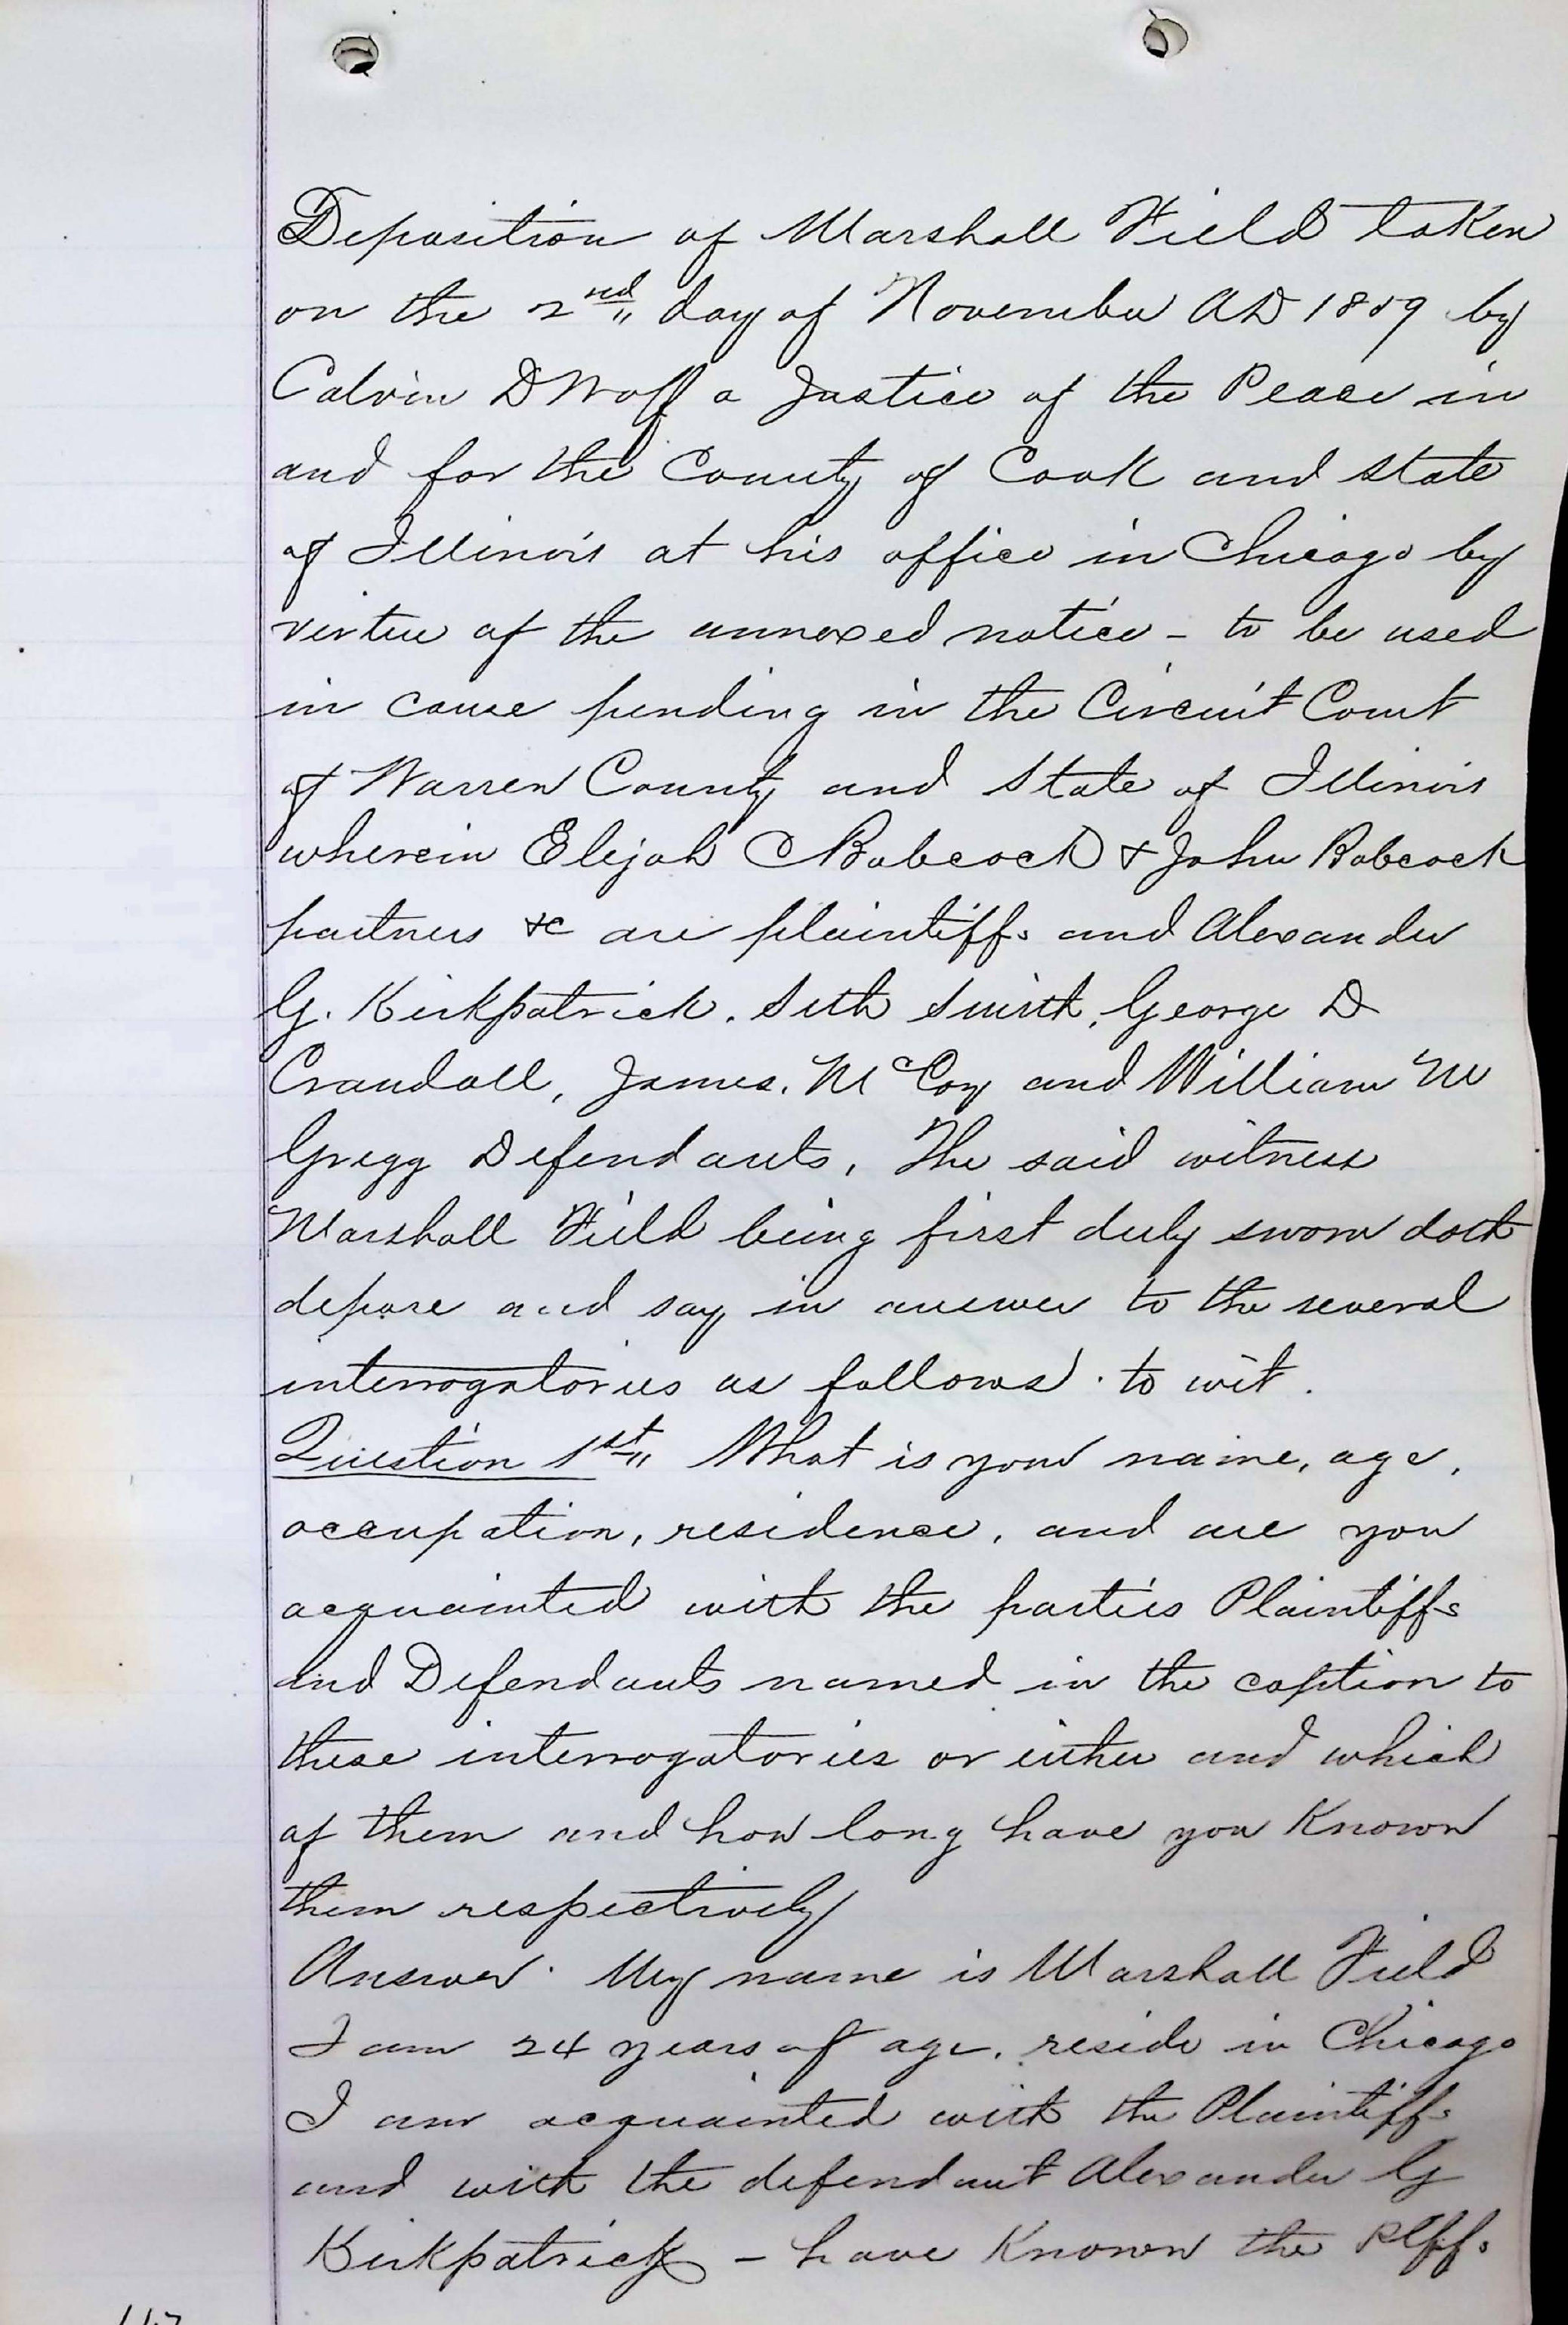 Deposition of Marshall Field taken
on the 2nd,, day of November AD 1859 by
Calvin D Wolf a Justice of the Peace in
and for the County of Cook and State
of Illinois at his office in Chicago by
virtue of the annexed notice - to be used
in cause pending in the Circuit Court
of Warren County and State of Illinois
wherein Elijah C Babcock & John Babcock
partners &c are plaintiffs and Alexander
G. Kirkpatrick. Seth Smith, George D
Crandall, James. McCoy and William M
Gregg Defendants, The said witness
Marshall Field being first duly sworn doth
depose and say in answer to the several
interrogatories as follows. to wit.
Question 1st,, What is your name, age,
occupation, residence, and are you
acquainted with the parties Plaintiffs
and Defendants named in the caption to
these interrogatories or either and which
of them and how long have you Known
them respectively
Answer. My name is Marshall Field
I am 24 years of age. reside in Chicago
I am acquainted with the Plaintiffs
and with the defendant Alexander G
Kirkpatrick - have Known the Plffs.